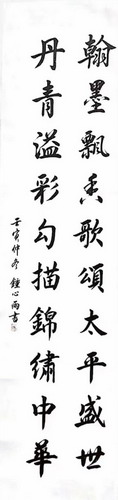 翰墨飄香歌頌太平盛世
丹青溢彩勾描錦繡中華
壬寅仲冬 鍾心雨書